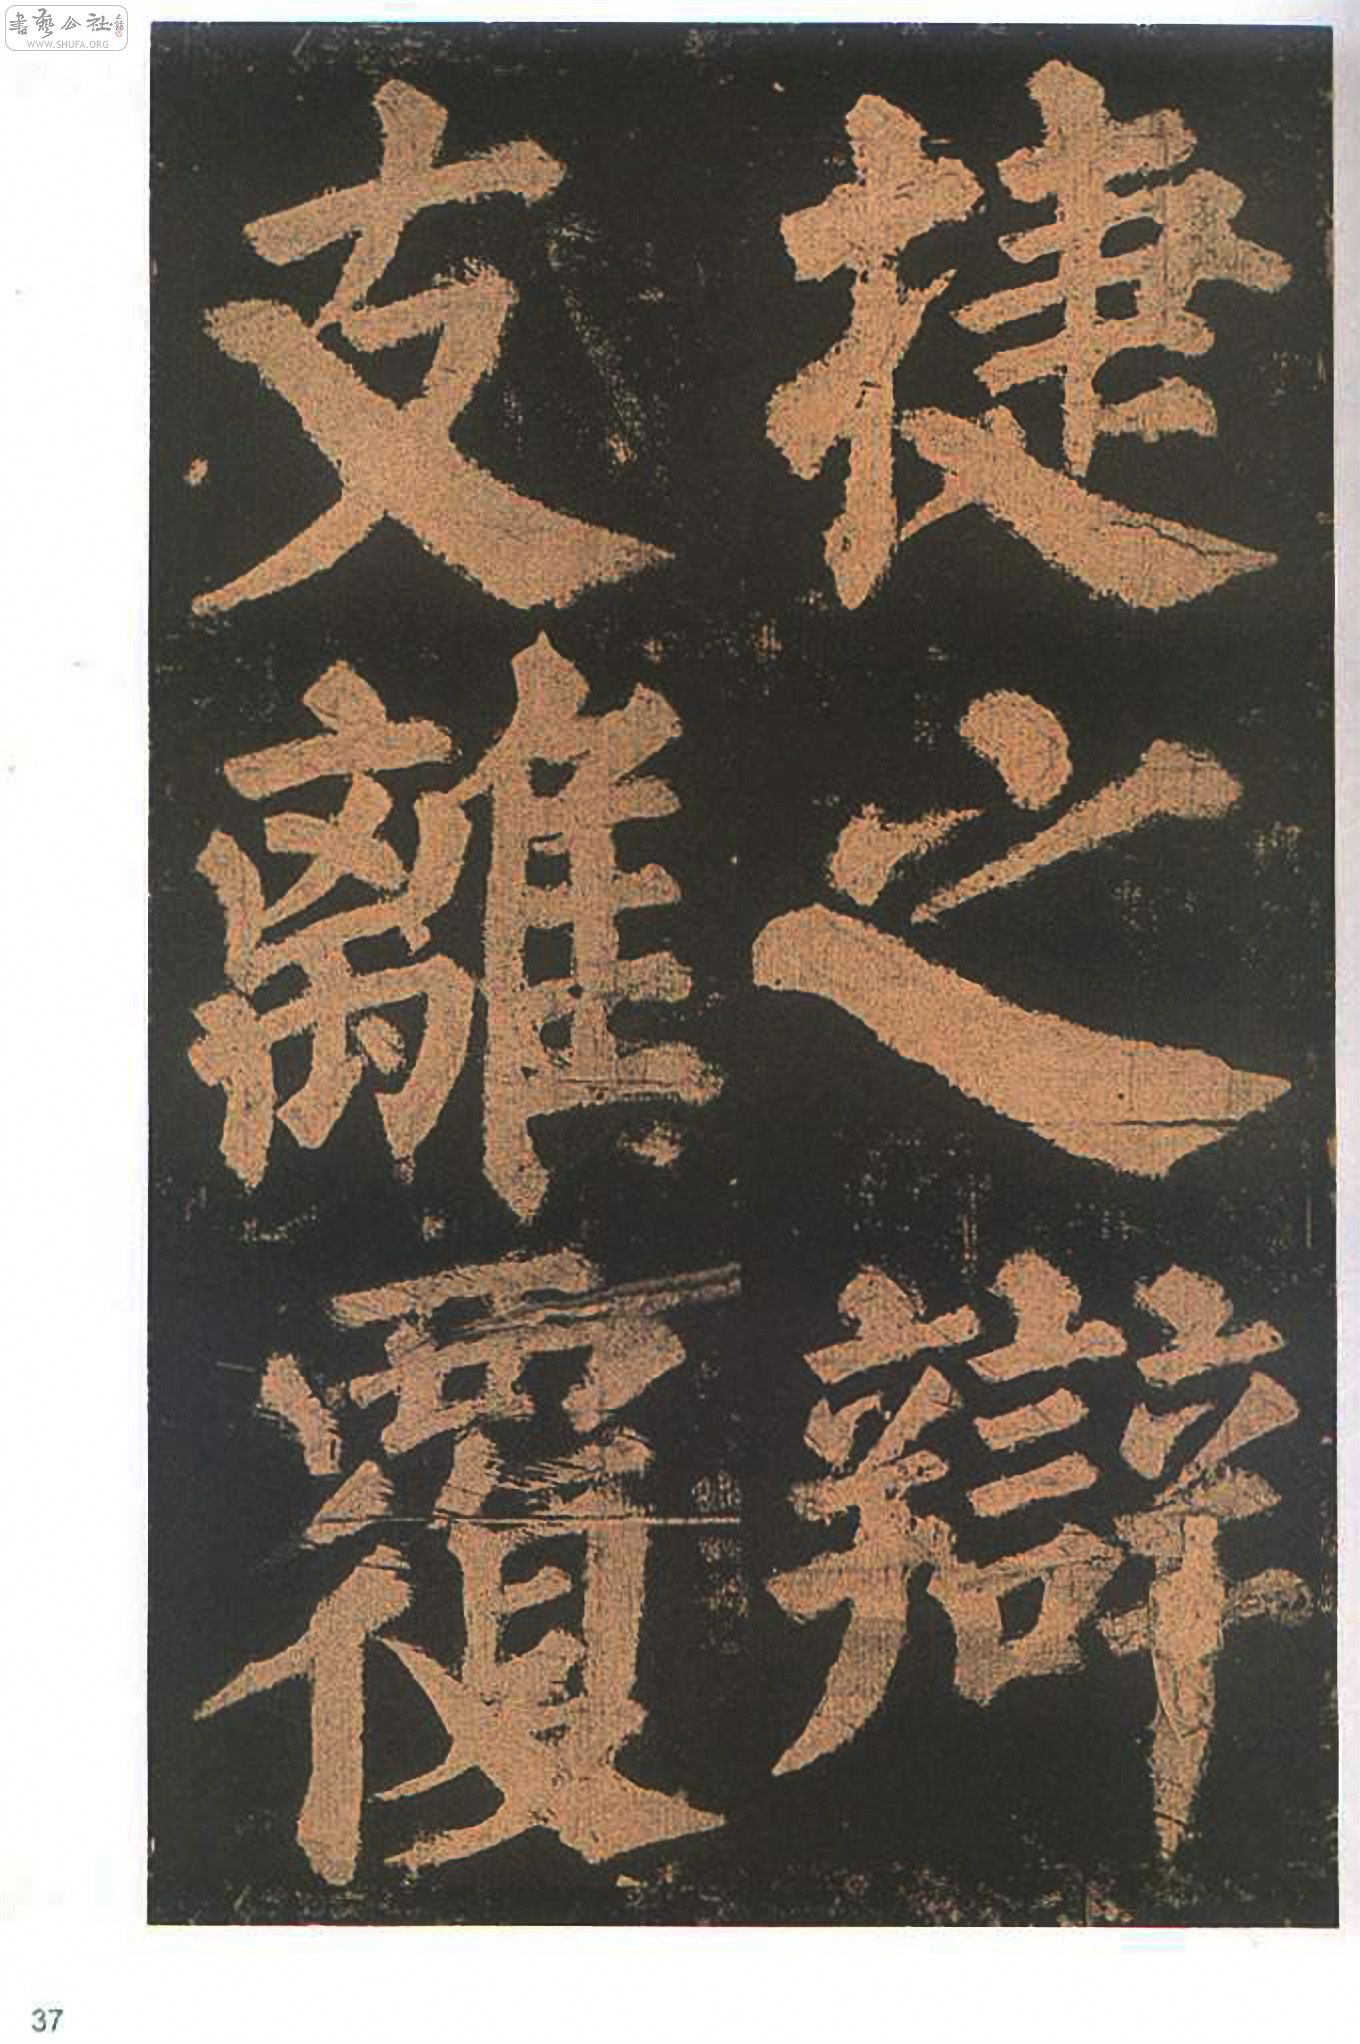 書藝公社
WWW.SHUFA.ORG
捷之辯
支離覆
37